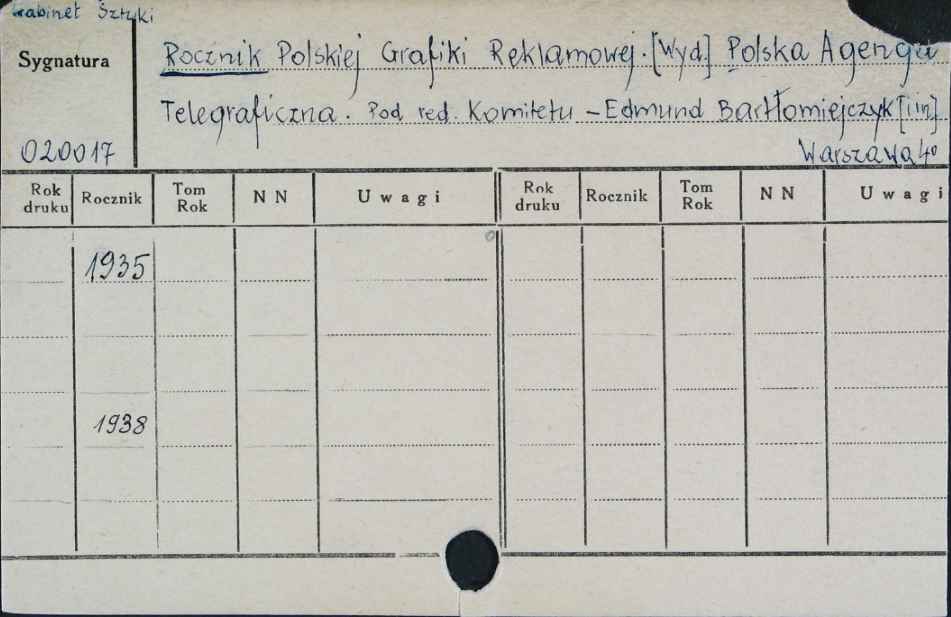 Gabinet Sztuki
Sygnatura
020017
Rocznik Polskiej Grafiki Reklamowej. [Wyd] Polska Agencja
Telegraficzna. Pod red. Komitetu – Edmund Bartłomiejczyk [i in]
Warszawa 4°
Rok druku Rocznik Tom Rok N N Uwagi Rok druku Rocznik Tom Rok N N Uwagi
1935
1938